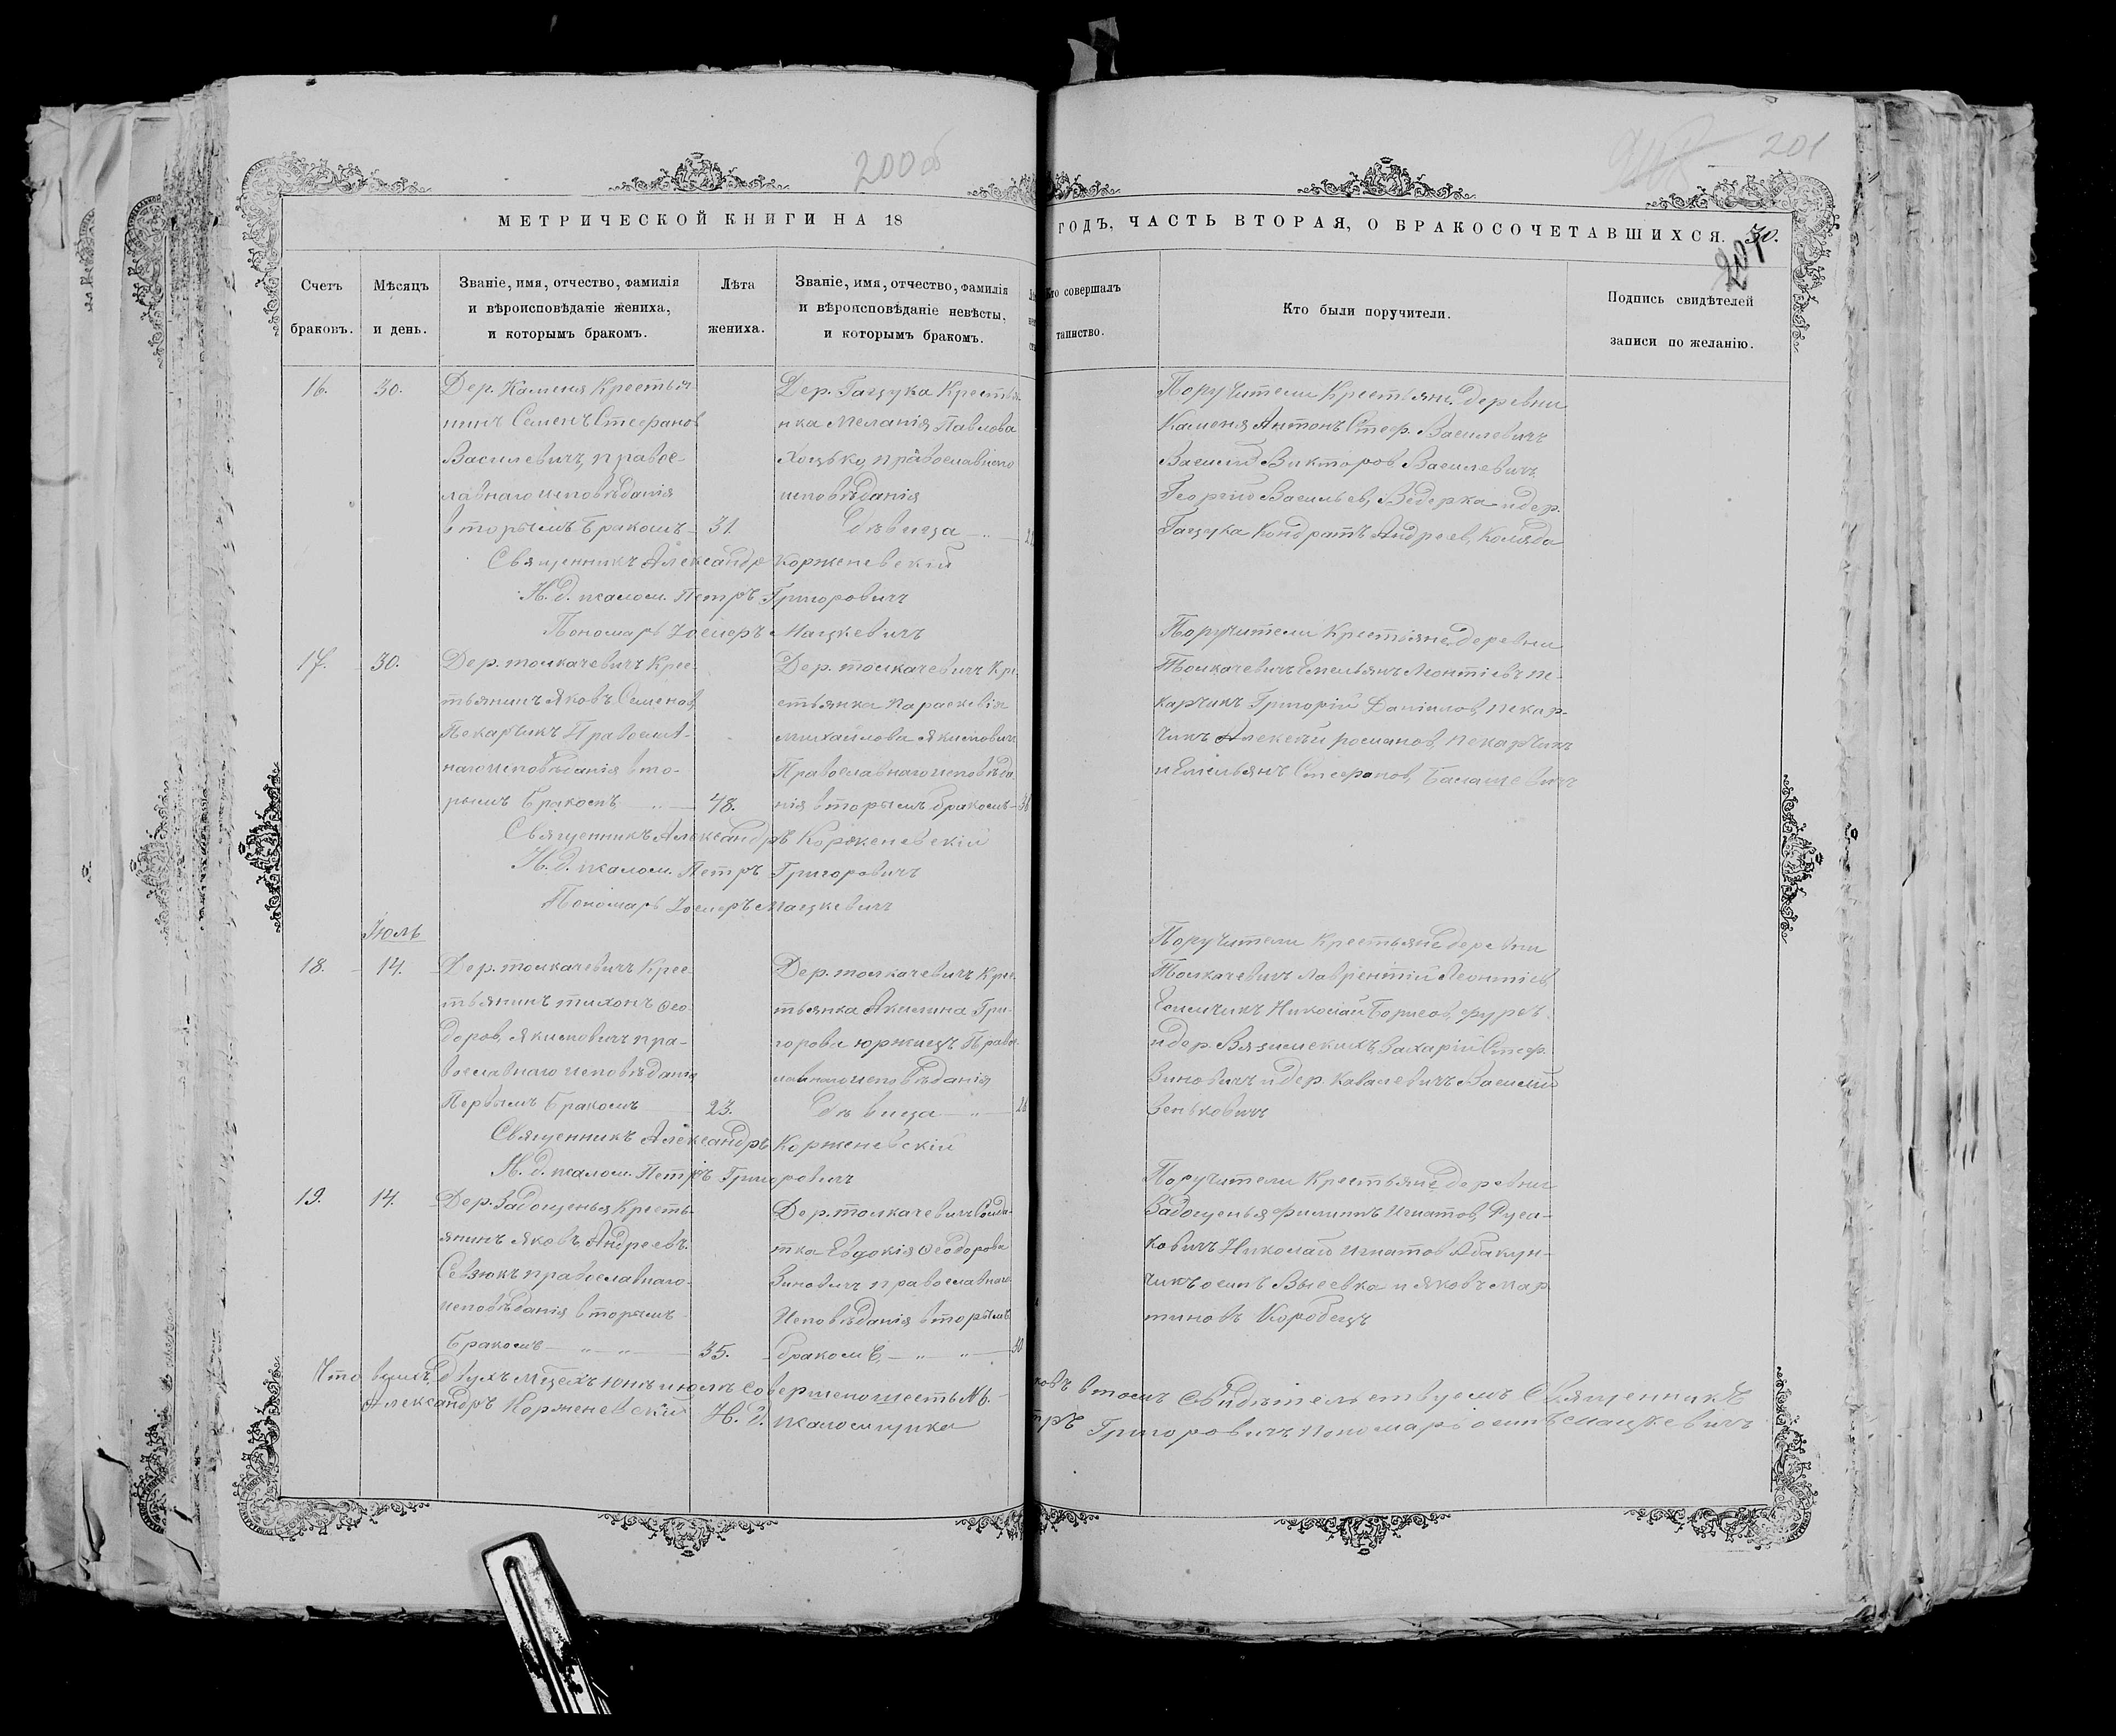 200об
201
МЕТРИЧЕСКОЙ КНИГИ НА 18
ГОДЪ, ЧАСТЬ ВТОРАЯ, О БРАКОСОЧЕТАВШИХСЯ. 30.
201
Счетъ браковъ.
Мѣсяцъ и день.
Званіе, имя, отчество, фамилія
и вѣроисповѣданіе жениха,
и которымъ бракомъ.
Лѣта жениха.
Званіе, имя, отчество, фамилія
и вѣроисповѣданіе невѣсты,
и которымъ бракомъ.
Кто совершалъ
таинство.
Кто были поручители.
Подпись свидѣтелей
записи по желанію.
16. 30.
Дер. Каменя Крестья
нинъ Семенъ Стефановъ
Василевичъ, правос-
лавнаго исповѣданія
вторымъ бракомъ 31.
Дер. Гацука Крестья
нка Меланія Павлова
Хоцько, православнаго
исповѣданія
Дѣвица
Священникъ Александръ Корженевскій
И. д. псалом. Петръ Григоровичъ
Пономарь Іосифъ Мацкевичъ
Поручители Крестьяне деревни
Каменя Антонъ Стеф. Василевичъ
Василій Викторов, Василевичъ
Георгій Васильев, Ведерка и дер.
Гацука Кондратъ Андреев, Коляда
17. 30.
Дер. толкачевичъ Крес-
тьянинъ Яковъ Семенов,
Пекарчикъ Православ-
наго исповѣданія вто-
рымъ бракомъ 48.
Дер. толкачевичъ Кре
стьянка Параскевія
Михайлова Якимовичъ
Православнаго исповѣда
нія вторымъ бракомъ 36
Священникъ Александръ Корженевскій
И. д. псалом. Петръ Григоровичъ
Пономарь Іосифъ Мацкевичъ
Поручители Крестьяне деревни
Толкачевичъ Емельянъ Леонтіевъ пе-
карчикъ Григорій Даніилов, пекар-
чикъ Алексѣй романов, пекарчикъ
и Емельянъ Стефанов, Балашевичъ
Іюль
18. 14.
Дер. толкачевичъ Крес-
тьянинъ тихонъ Ѳео-
доров, Якимовичъ пра-
вославнаго исповѣданія
Первымъ бракомъ 23.
Дер. толкачевичъ Крес-
тьянка Акилина Гри-
горова юржицъ Право-
славнаго исповѣданія
Дѣвица
Священникъ Александръ Корженевскій
И. д. псалом. Петръ Григоровичъ
Поручители Крестьяне деревни
Толкачевичъ Лаврентій Леонтіев,
Николай Борисов,
и дер. Вязынскихъ, Захарій Стеф.
Зиновичъ и дер. Кавалевичъ Василій
Зеньковичъ
19. 14.
Дер. Задощенья Кресть-
янинъ Яковъ Андреевъ
Севзюкъ православнаго
исповѣданія вторымъ
бракомъ 35.
Дер. толкачевичъ Солда-
тка Евдокія Ѳеодорова
Зиновичъ православнаго
Исповѣданія вторымъ
бракомъ 30
Поручители Крестьяне деревни
Задощенья Филиппъ Игнатов, Руса-
ковичъ Николай Игнатов Абакун-
чикъ осипъ Высевка и Яковъ мар
тиновъ Коробецъ
Что въ сихъ двухъ Мцахъ Юнѣ и юлѣ совершено шесть бра-
ковъ втомъ свидѣтельствуемъ Священникъ
Александръ Корженевскій И. д. псаломщика
тръ Григоровичъ пономарь осипъ мацкевичъ